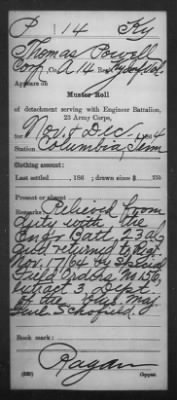 P 14 Ky
Thomas Powell
Corp., Co. A, 14 Reg't Ky. Inf.
Appears on
Muster Roll
of detachment serving with Engineer Battalion,
23 Army Corps,
for Nov. & Dec., 1864
Station Columbia, Tenn
Clothing account:
Last settled, 186 ; drawn since $
Present or absent
Remarks: Relieved from
duty with the
Engr. Batt. 23 a.c.
and returned to Reg't
Nov. 17/64 by Special
Field Orders No. 156,
Extract 3, Dept
of the Ohio. Maj
Genl Schofield.
Book mark:
Ragan
Copyist.